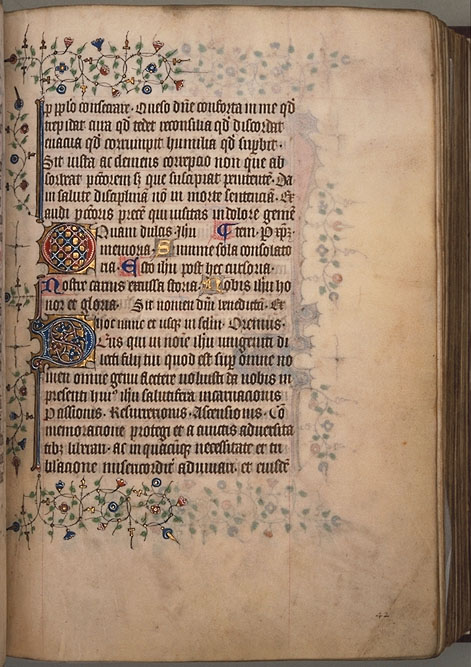 p ipso consecrare. Queso dñe conforta in me qđ
trepidat cura qđ tedet reconsilia qđ discordat
euacua qđ corrumpit humilia qđ supbit.
Sit iusta ac clemens correpcio non que ab
sorbeat pctorem sȝ que suscipiat penitentē. Da
in salutē disciplinā nō in morte sentenciā. Ex
audi pctoris precē qui uisitas in dolore genitē
O Quam dulcis Jhū
memoria. Summe sola consolato
ria. Esto ihu post hec cursoria.
Nostre carnis emissa storia. Nobis ihu ho
nor et gloria. Sit nomen dñi benedictū. Ex
hoc nunc et usqȝ in sclm. Oremus.
Deus qui in noīe ihu unigeniti di
lecti filii tui quod est sup omne no
men omne genu flectere uoluisti da nobis in
presenti huiꝰ ihu salutifera incarnacionis
Passionis. Resurrexionis. Ascensionis. Cō
memoracione protegi et a cunctis aduersita
tibȝ liberari. ac in quacūqȝ necessitate et tri
bulacione misericorditer adiuuari. et eiusdē
42